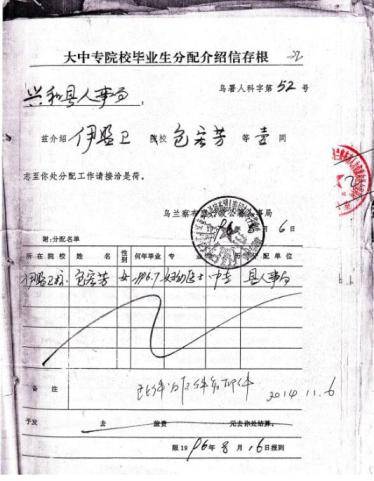 大中专院校毕业生分配介绍信存根
兴和县人事局：
乌署人科字第52号
兹介绍 伊盟卫 院校 包宏芳 等 壹 同
志至你处分配工作请接洽是荷。
乌兰察布盟行政公署人事局
96 8 6日
附:分配名单
所在院校 姓名 性别 何年毕业 专业 学历 分配单位
伊盟卫校 包宏芳 女 1996.7 妇幼医士 中专 县人事局
备注
此件为原件复印件
2014 11.6
予发 去 旅费 元去你处结算。
限1996年8月16日报到